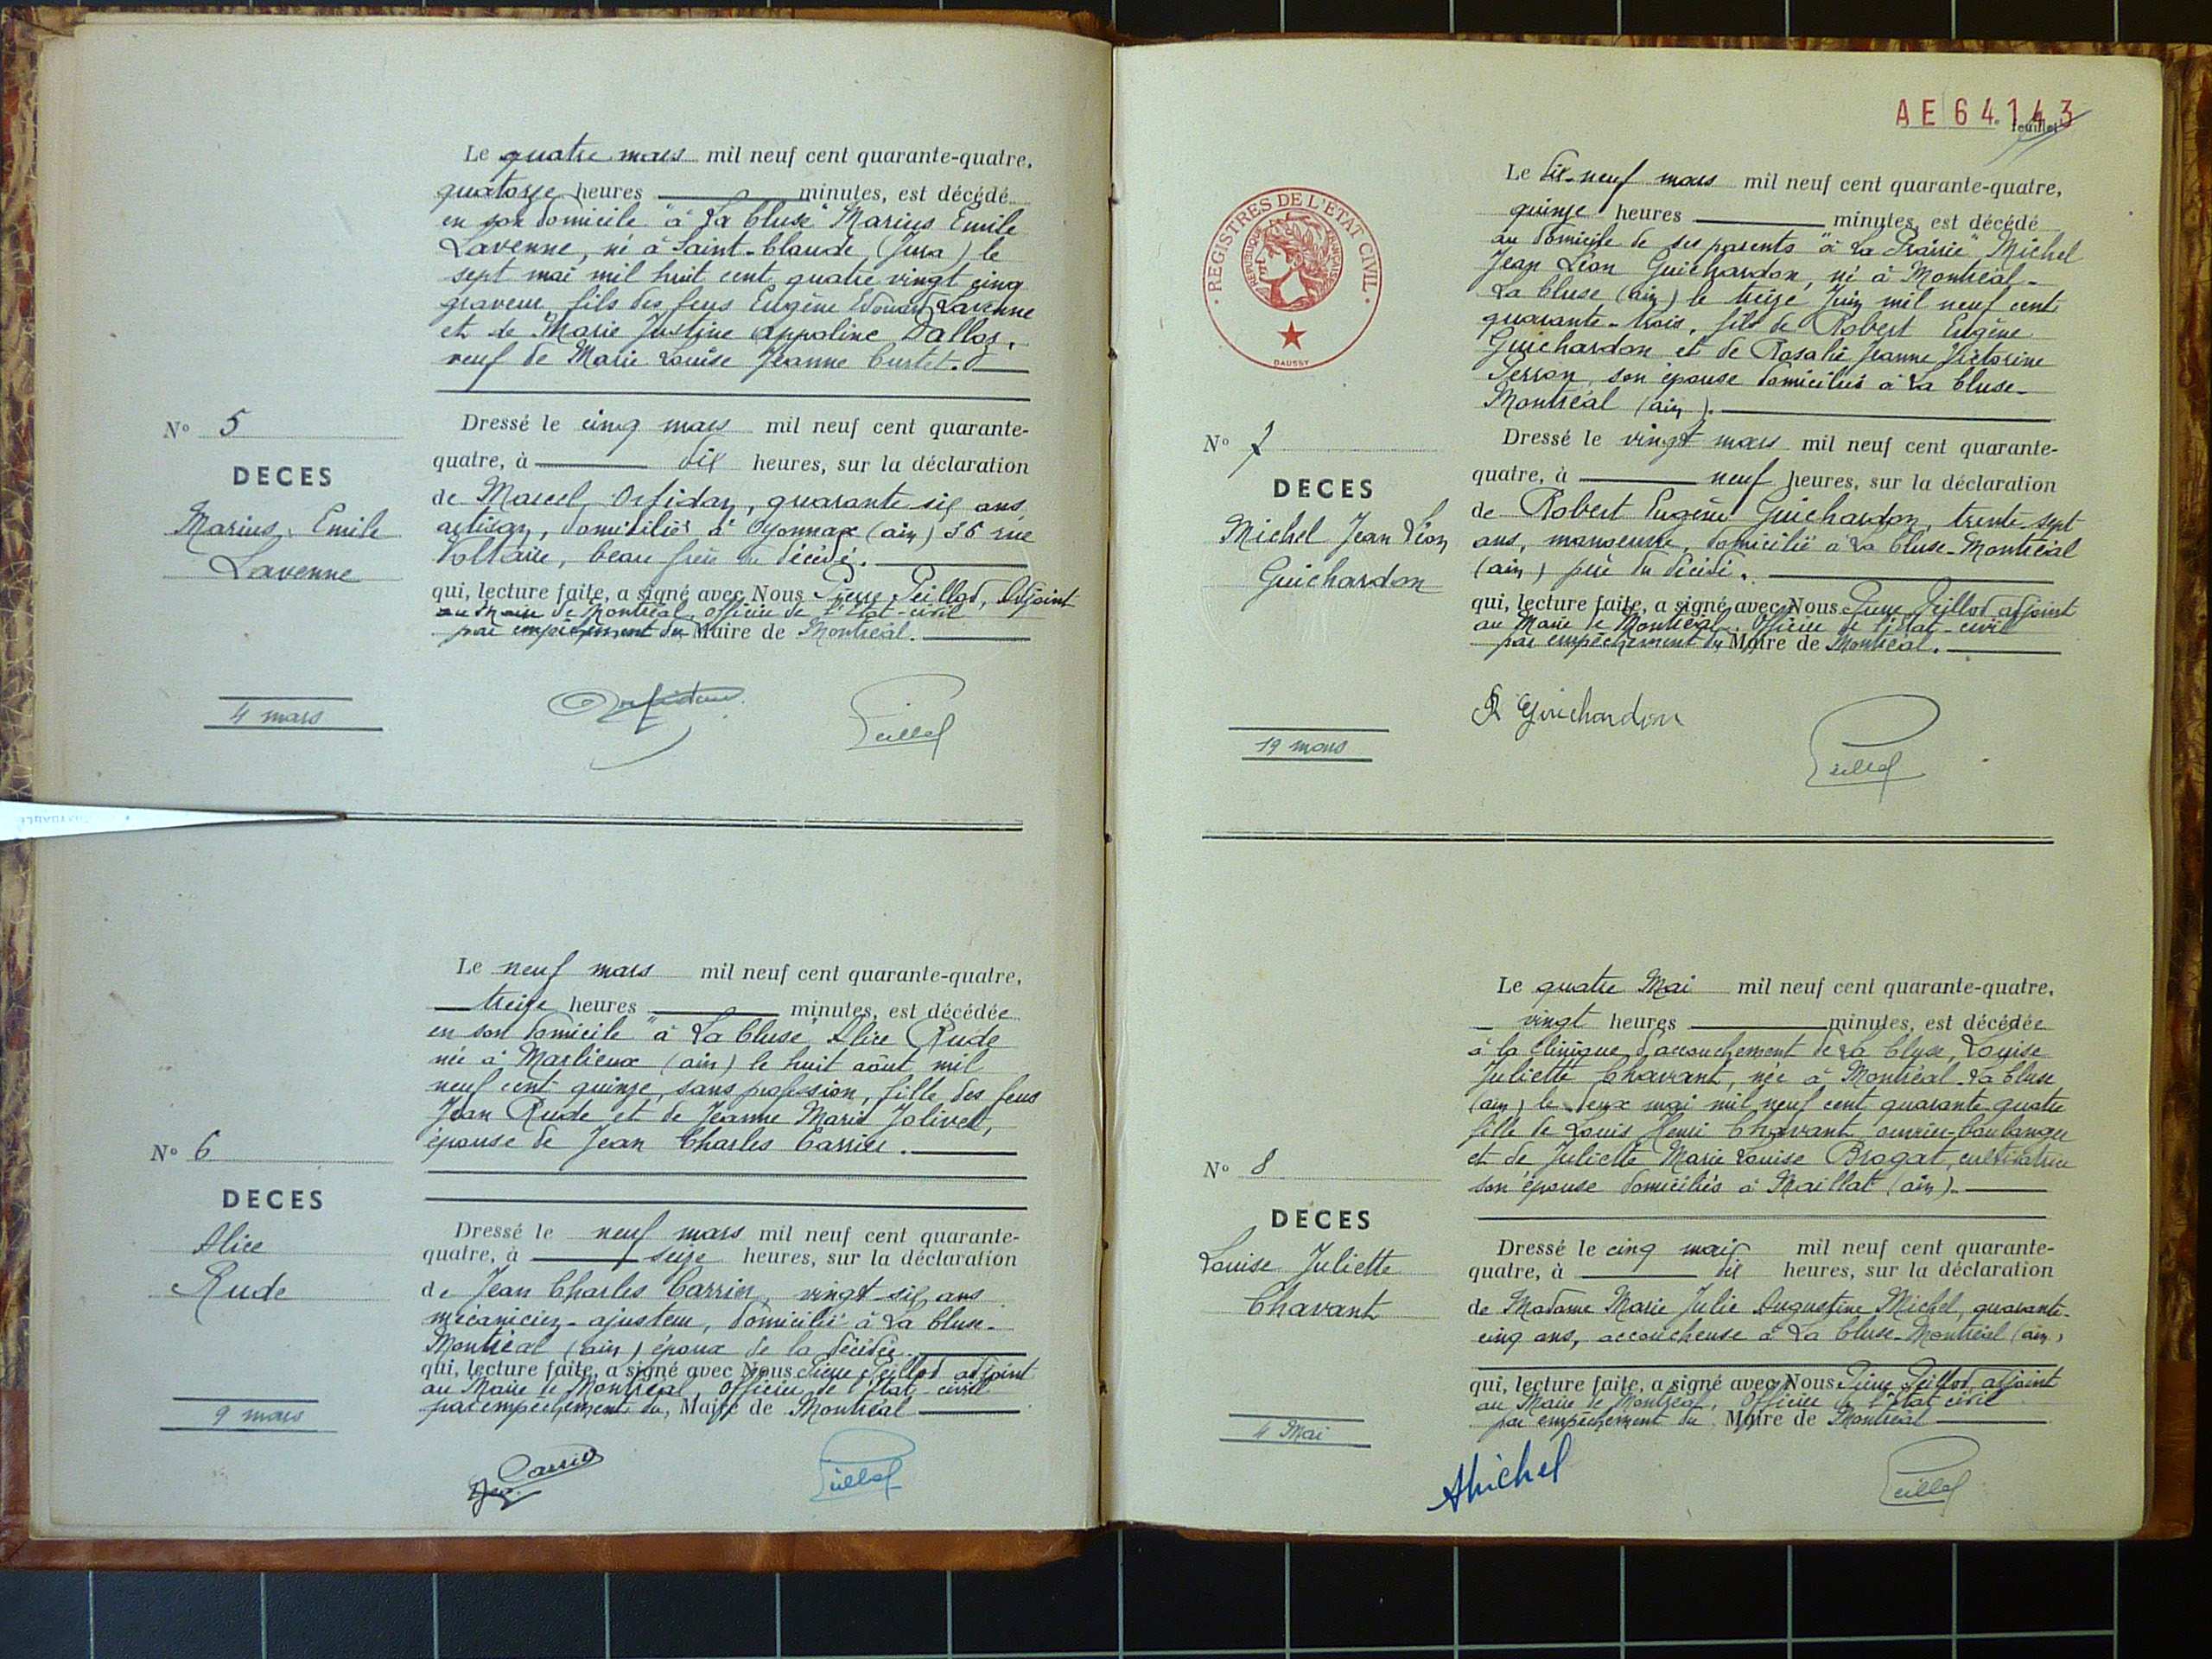 Le quatre mars mil neuf cent quarante-quatre,
quatorze heures minutes, est décédé
en son domicile "à La Cluse" Marius Emile
Lavenne, né à Saint-Claude (Jura) le
sept mai mil huit cent quatre vingt cinq
graveur, fils des feus Eugène Edouard Lavenne
et de Marie Justine Appoline Dallos,
veuf de Marie Louise Jeanne Curtet.
N° 5
DECES
Marius, Emile
Lavenne
Dressé le cinq mars mil neuf cent quarante-
quatre, à dix heures, sur la déclaration
de Marcel Orfidan, quarante six ans
artisan, domicilié à Oyonnax (ain) 36 rue
Voltaire, beau frère du décédé.
qui, lecture faite, a signé avec Nous Pierre Peillod, Adjoint
au Maire de Montréal, officier de l'Etat-civil
par empêchement du Maire de Montréal.
4 mars
Peillod
Le neuf mars mil neuf cent quarante-quatre,
treize heures minutes, est décédée
en son domicile "à La Cluse" Alice Rude
née à Marlieux (ain) le huit août mil
neuf cent quinze, sans profession, fille des feus
Jean Rude et de Jeanne Marie Jolivet,
épouse de Jean Charles Carrier.
N° 6
DECES
Alice
Rude
Dressé le neuf mars mil neuf cent quarante-
quatre, à seize heures, sur la déclaration
de Jean Charles Carrier, vingt-six ans
mécanicien-ajusteur, domicilié à La Cluse-
Montréal (ain) époux de la décédée.
qui, lecture faite, a signé avec Nous Pierre Peillod adjoint
au Maire de Montréal, Officier de l'Etat-civil
par empêchement du, Maire de Montréal
9 mars
Carrier
Peillod
AE 64143
feuillet
REGISTRES DE L'ETAT CIVIL
REPUBLIQUE FRANÇAISE
DAUSSY
Le dix-neuf mars mil neuf cent quarante-quatre,
quinze heures minutes, est décédé
au domicile de ses parents "à La Prairie" Michel
Jean Léon Guichardon, né à Montréal-
La Cluse (ain) le treize Juin mil neuf cent
quarante-trois, fils de Robert Eugène
Guichardon et de Rosalie Jeanne Victorine
Perron, son épouse domiciliés à La Cluse-
Montréal (ain).
N° 7
DECES
Michel Jean Léon
Guichardon
Dressé le vingt mars mil neuf cent quarante-
quatre, à neuf heures, sur la déclaration
de Robert Eugène Guichardon, trente-sept
ans, manoeuvre, domicilié à La Cluse-Montréal
(ain) père du décédé.
qui, lecture faite, a signé avec Nous Pierre Peillod adjoint
au Maire de Montréal, Officier de l'Etat-civil
par empêchement du Maire de Montréal.
R Guichardon
19 mars
Peillod
Le quatre Mai mil neuf cent quarante-quatre,
vingt heures minutes, est décédée
à la Clinique d'accouchement de La Cluse, Louise
Juliette Chavant, née à Montréal-La Cluse
(ain) le deux mai mil neuf cent quarante quatre
fille de Louis Henri Chavant ouvrier-boulanger
et de Juliette Marie Louise Brogat, cultivatrice
son épouse domiciliés à Maillat (ain).
N° 8
DECES
Louise Juliette
Chavant
Dressé le cinq mai mil neuf cent quarante-
quatre, à dix heures, sur la déclaration
de Madame Marie Julie Augustine Michel, quarante-
cinq ans, accoucheuse à La Cluse-Montréal (ain)
qui, lecture faite, a signé avec Nous Pierre Peillod, adjoint
au Maire de Montréal, Officier de l'Etat civil
par empêchement du Maire de Montréal
4 Mai
AMichel
Peillod